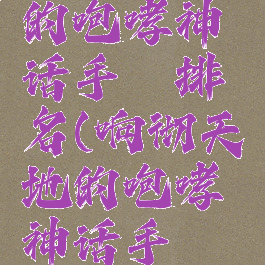 的咆哮神
话手 排
名(响彻天
地的咆哮
神话手